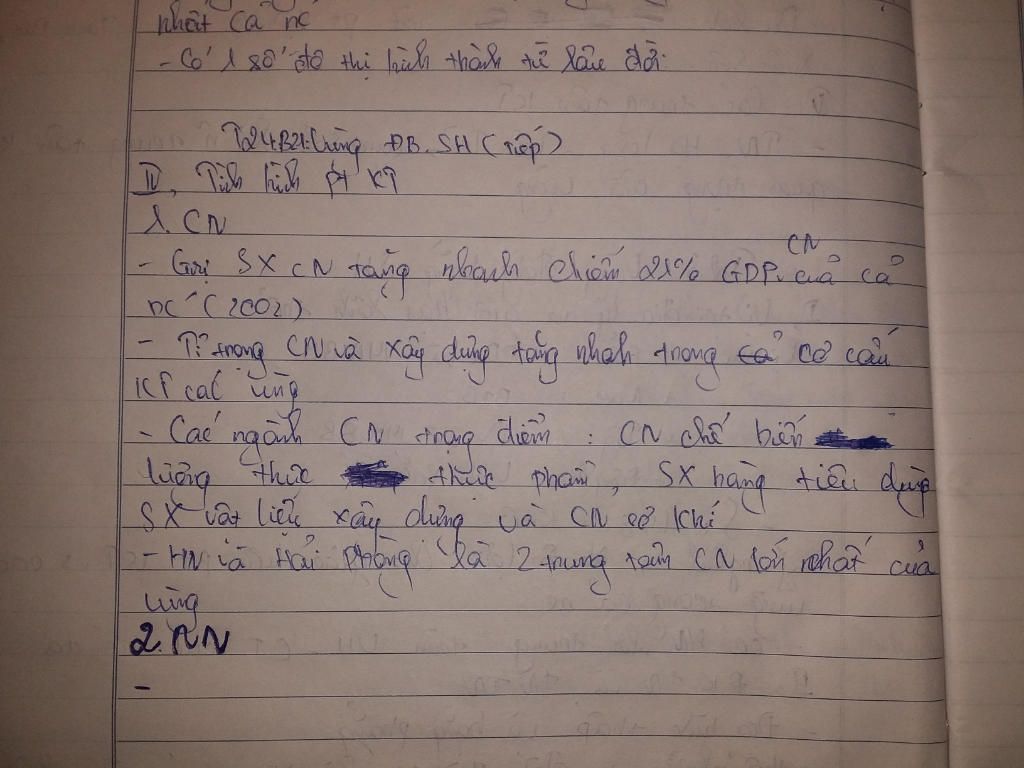 nhất cả nc
- Có 1 số đô thị hình thành từ lâu đời.
T24.B21: Vùng ĐB.SH (tiếp)
IV, Tình hình pt KT
1. CN
- Gtrị SX CN tăng nhanh chiếm 21% GDP CN của cả
nc (2002)
- Tỉ trọng CN và xây dựng tăng nhanh trong cơ cấu
KT các vùng
- Các ngành CN trọng điểm : CN chế biến
lương thức thực phẩm, SX hàng tiêu dùng
SX vật liệu xây dựng và CN cơ khí
- HN và Hải Phòng là 2 trung tâm CN lớn nhất của
vùng
2. NN
-